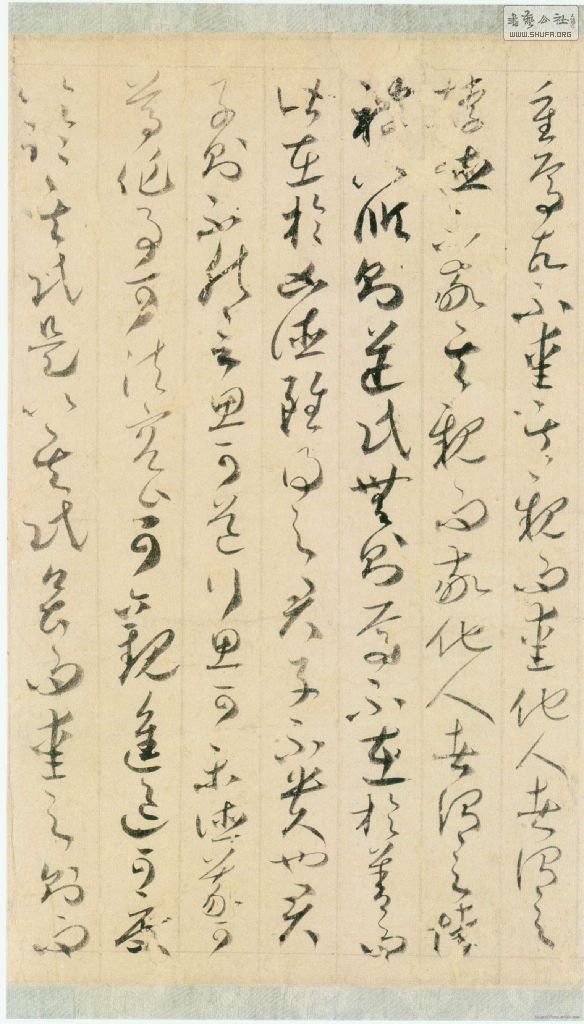 重焉故不愛其親而愛他人者謂之
悖德不敬其親而敬他人者謂之悖
禮以順則逆民無則焉不在於善而
皆在於凶德雖得之君子不貴也君
子則不然言思可道行思可樂德義可
尊作事可法容止可觀進退可度
以臨其民是以其民畏而愛之則而
書藝公社
WWW.SHUFA.ORG